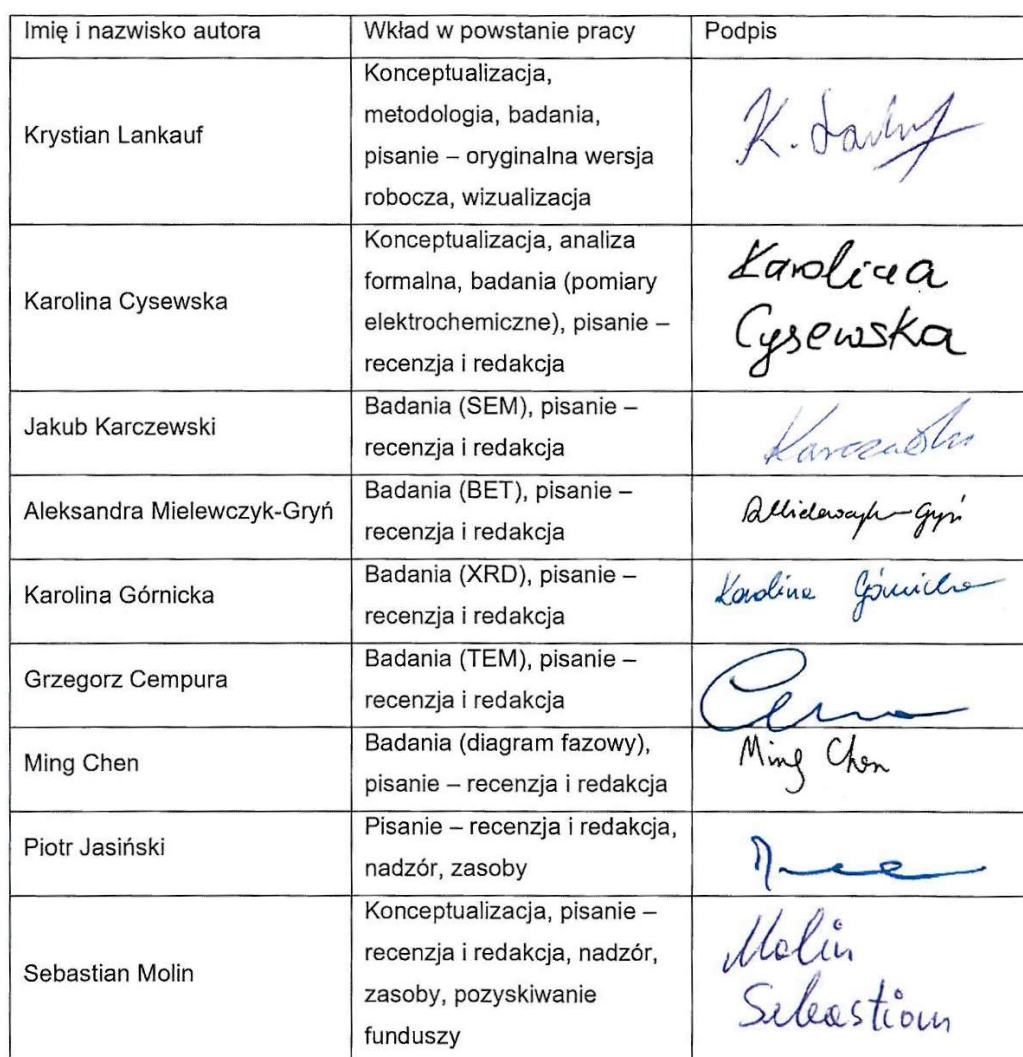 Imię i nazwisko autora Wkład w powstanie pracy Podpis
Krystian Lankauf
Konceptualizacja,
metodologia, badania,
pisanie – oryginalna wersja
robocza, wizualizacja
K.
Karolina Cysewska
Konceptualizacja, analiza
formalna, badania (pomiary
elektrochemiczne), pisanie –
recenzja i redakcja
Karolina
Cysewska
Jakub Karczewski
Badania (SEM), pisanie –
recenzja i redakcja
Aleksandra Mielewczyk-Gryń
Badania (BET), pisanie –
recenzja i redakcja
Karolina Górnicka
Badania (XRD), pisanie –
recenzja i redakcja
Karolina Górnicka
Grzegorz Cempura
Badania (TEM), pisanie –
recenzja i redakcja
Ming Chen
Badania (diagram fazowy),
pisanie – recenzja i redakcja
Ming Chen
Piotr Jasiński
Pisanie – recenzja i redakcja,
nadzór, zasoby
Sebastian Molin
Konceptualizacja, pisanie –
recenzja i redakcja, nadzór,
zasoby, pozyskiwanie
funduszy
Molin
Sebastian